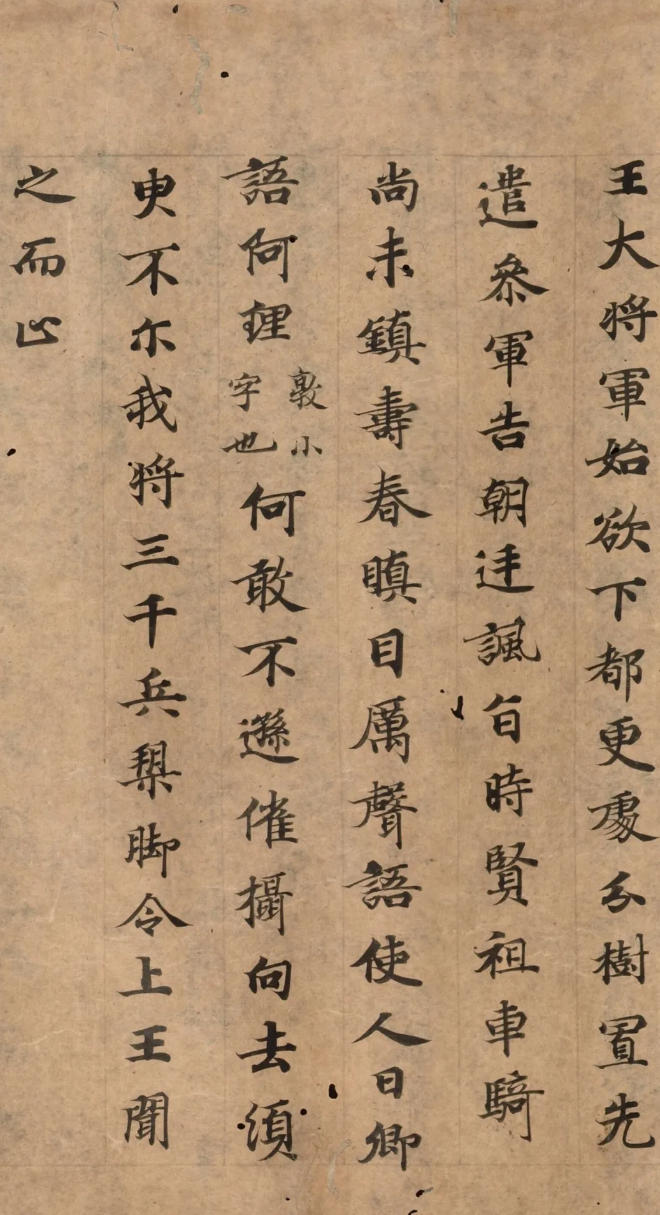 王大将軍始欲下都更處分樹置先
遣叅軍告朝廷諷旨時賢祖車騎
尚未鎮壽春瞋目厲聲語使人曰卿
語何〻敦小字也何敢不遜催攝向去須
臾不尓我将三千兵槊脚令上王聞
之而止